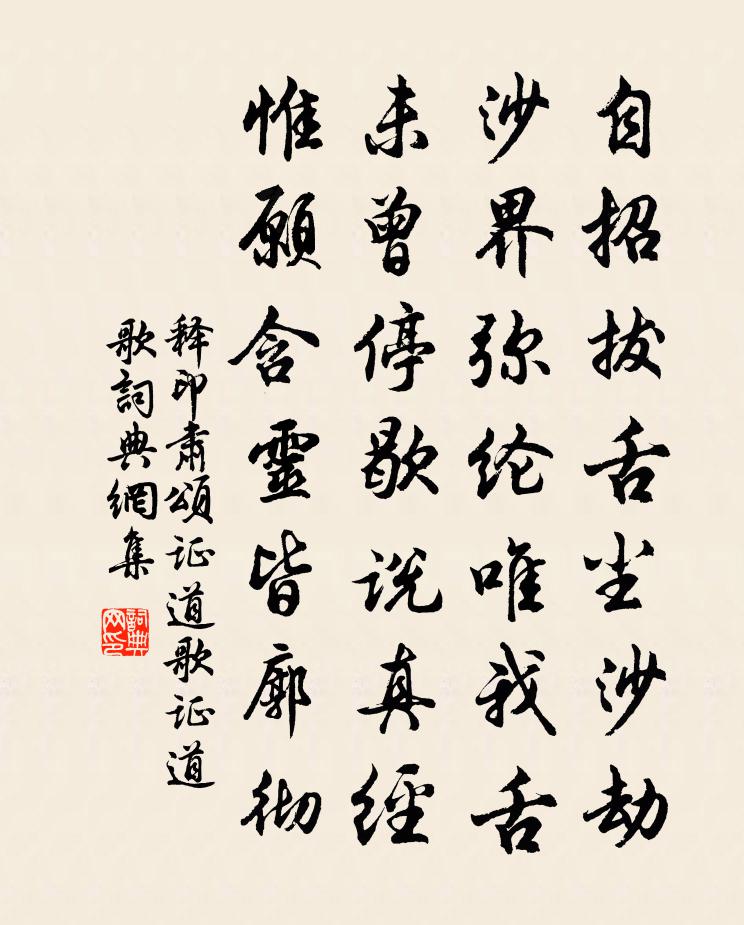 自招拔舌尘沙劫
沙界弥纶唯我舌
未曾停歇说真經
惟願含靈皆廓彻
释印肃頌证道歌证道
歌詞典網集
詞典
网印